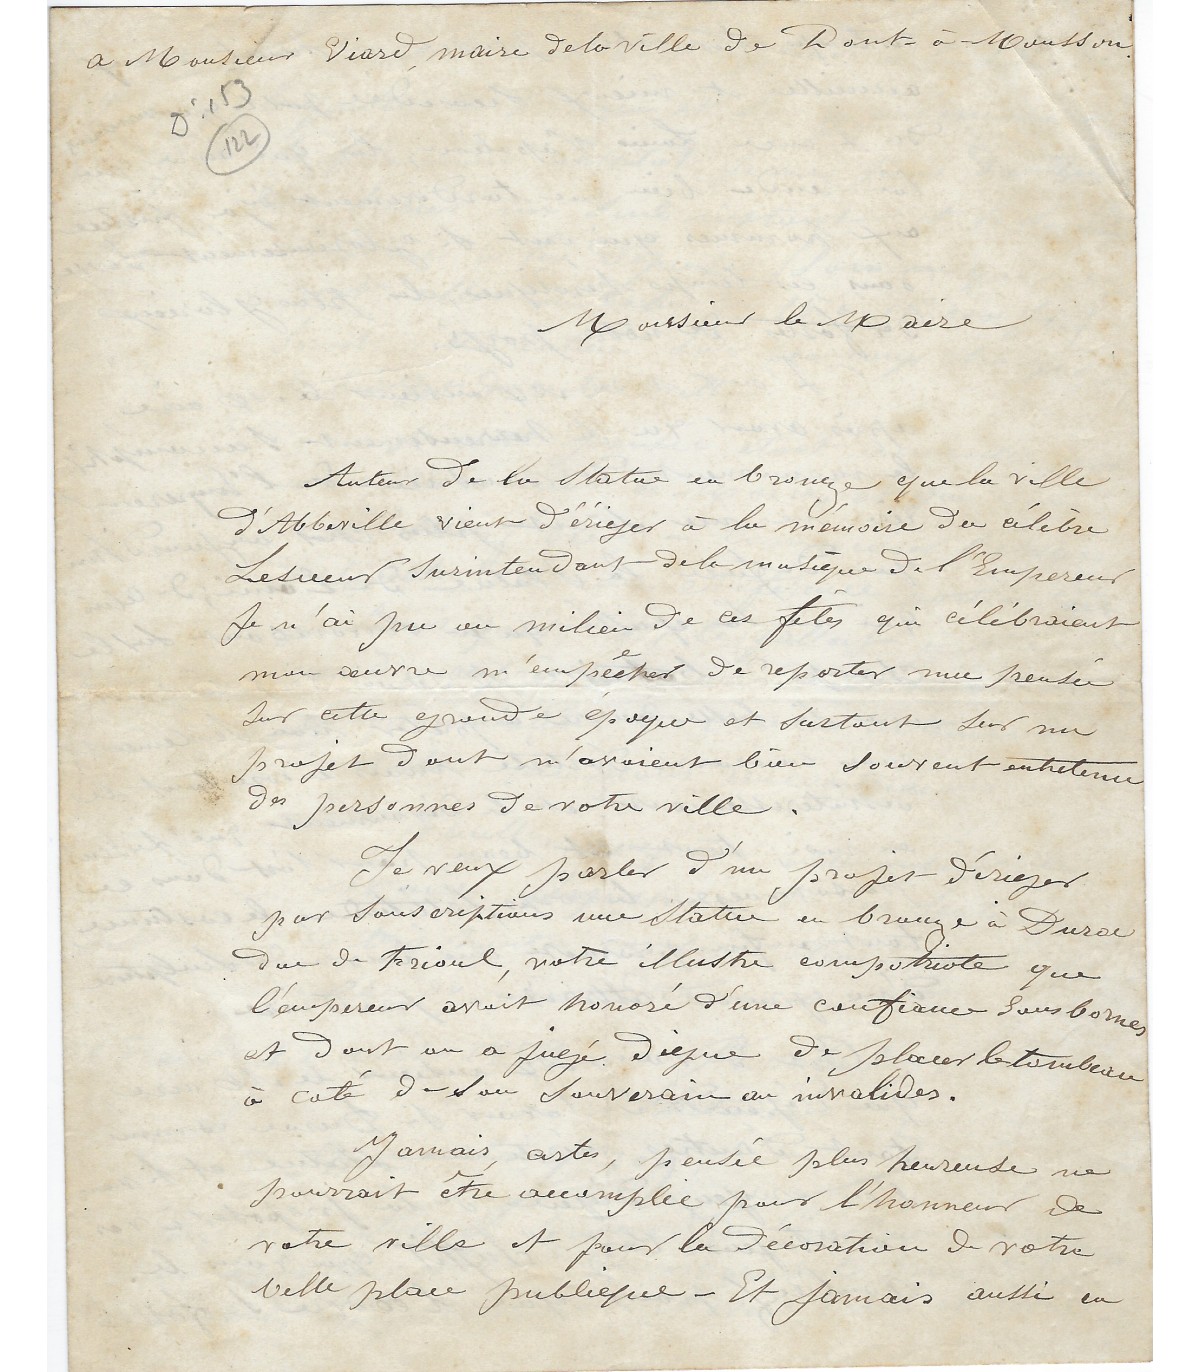 a Monsieur Viard, maire de la ville de Pont-à-Mousson
122
Monsieur le Maire
Auteur de la Statue en bronze que la ville
d'Abbeville vient d'ériger à la mémoire du célèbre
Lesueur Surintendant de la musique de l'Empereur
Je n'ai pu au milieu de ces fêtes qui célébraient
mon œuvre m'empêcher de reporter ma pensée
sur cette grande époque et surtout sur un
projet dont m'avaient bien souvent entretenu
des personnes de votre ville.
Je veux parler d'un projet d'ériger
par souscriptions une Statue en bronze à Duroc
duc de Frioul, votre illustre compatriote que
l'empereur avait honoré d'une confiance sans bornes
et dont on a jugé digne de placer le tombeau
à coté de son souverain au invalides.
Jamais, certes, pensée plus heureuse ne
pourrait être accomplie pour l'honneur de
votre ville et pour la décoration de votre
belle place publique - Et jamais aussi en